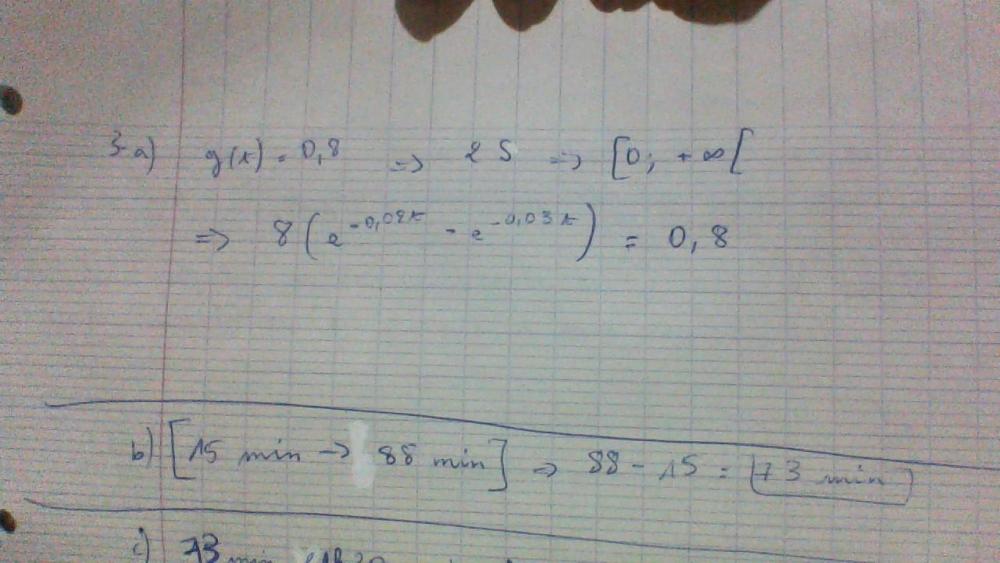 3-a) g(x) = 0,8 => 2 S => [0; +∞[
=> 8(e^-0,02x - e^-0,03x) = 0,8
b) [15 min -> 88 min] => 88 - 15 = 73 min
c) 73 min